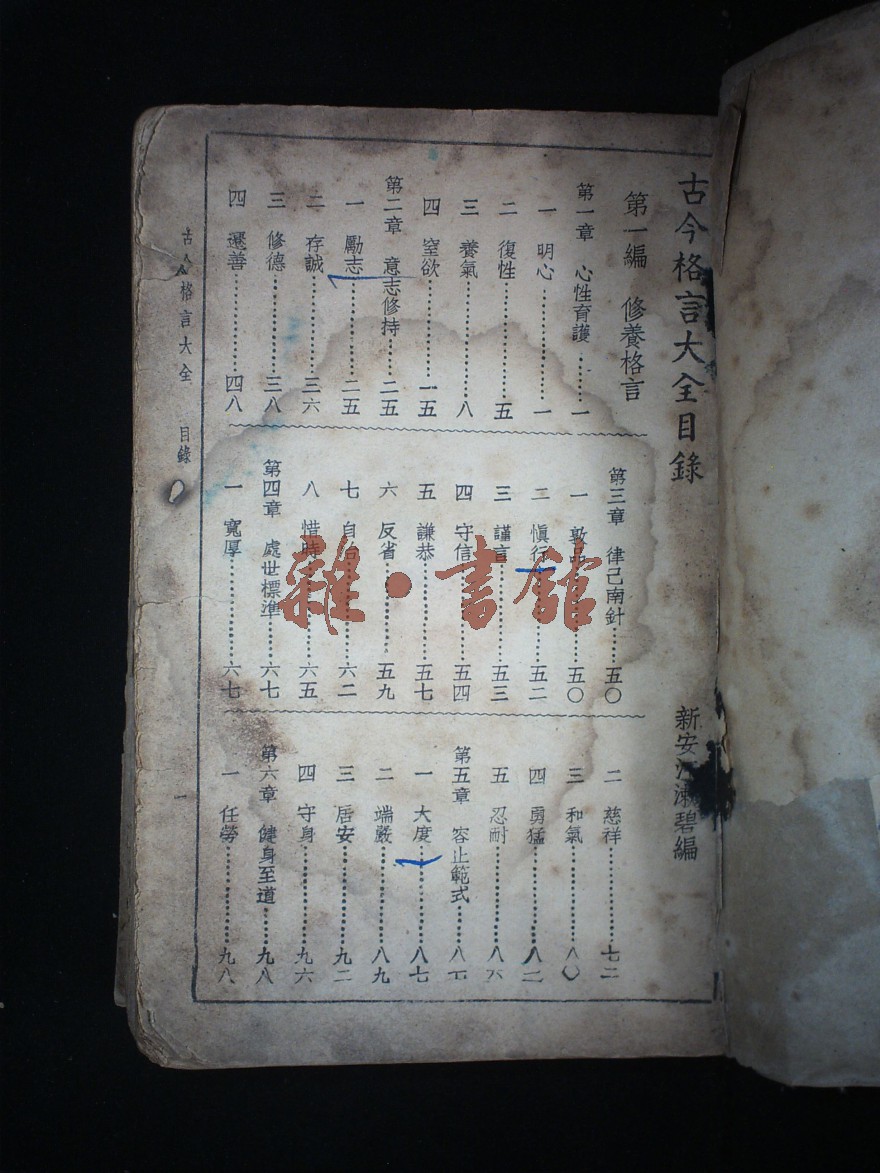 古今格言大全目錄
新安江漱碧編
第一編　修養格言
第一章　心性育護……一
一　明心……一
二　復性……五
三　養氣……八
四　窒欲……一五
第二章　意志修持……二五
一　勵志……二五
二　存誠……三六
三　修德……三八
四　遷善……四八
第三章　律己南針……五〇
一　敦品……五〇
二　慎行……五二
三　謹言……五三
四　守信……五四
五　謙恭……五七
六　反省……五九
七　自治……六二
八　惜時……六五
第四章　處世標準……六七
一　寬厚……六七
二　慈祥……七二
三　和氣……八〇
四　勇猛……八二
五　忍耐……八六
第五章　容止範式……八七
一　大度……八七
二　端嚴……八九
三　居安……九二
四　守身……九六
第六章　健身至道……九八
一　任勞……九八
古今格言大全　目錄
一
雜·書館